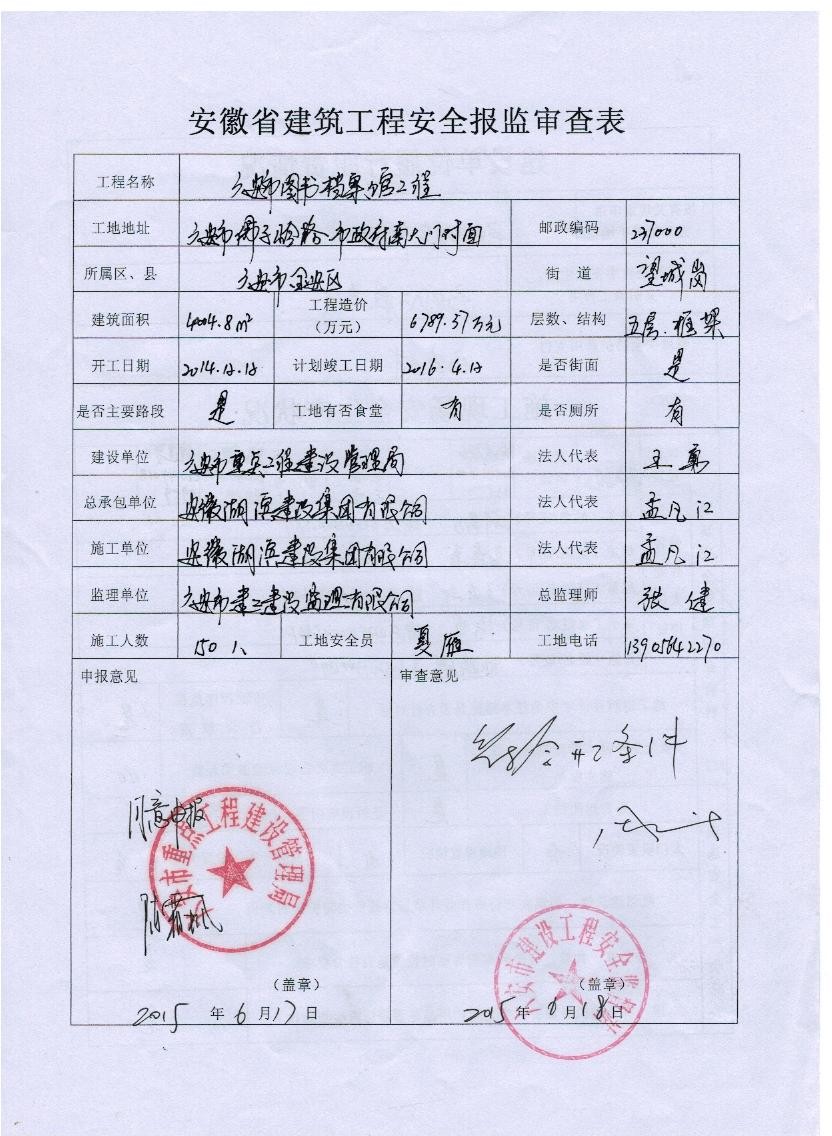 安徽省建筑工程安全报监审查表
工程名称 六安市图书档案馆工程
工地地址 六安市佛子岭路市政府南大门对面 邮政编码 237000
所属区、县 六安市金安区 街道 望城岗
建筑面积 4004.8m² 工程造价（万元） 6789.37万元 层数、结构 五层.框架
开工日期 2014.12.18 计划竣工日期 2016.4.18 是否街面 是
是否主要路段 是 工地有否食堂 有 是否厕所 有
建设单位 六安市重点工程建设管理局 法人代表 王勇
总承包单位 安徽湖滨建设集团有限公司 法人代表 孟凡江
施工单位 安徽湖滨建设集团有限公司 法人代表 孟凡江
监理单位 六安市建工建设监理有限公司 总监理师 张健
施工人数 150人 工地安全员 夏雁 工地电话 13905642270
申报意见 审查意见
符合开工条件
同意申报
六安市重点工程建设管理局
六安市建设工程安全监督站
（盖章） （盖章）
2015年6月17日 2015年6月18日